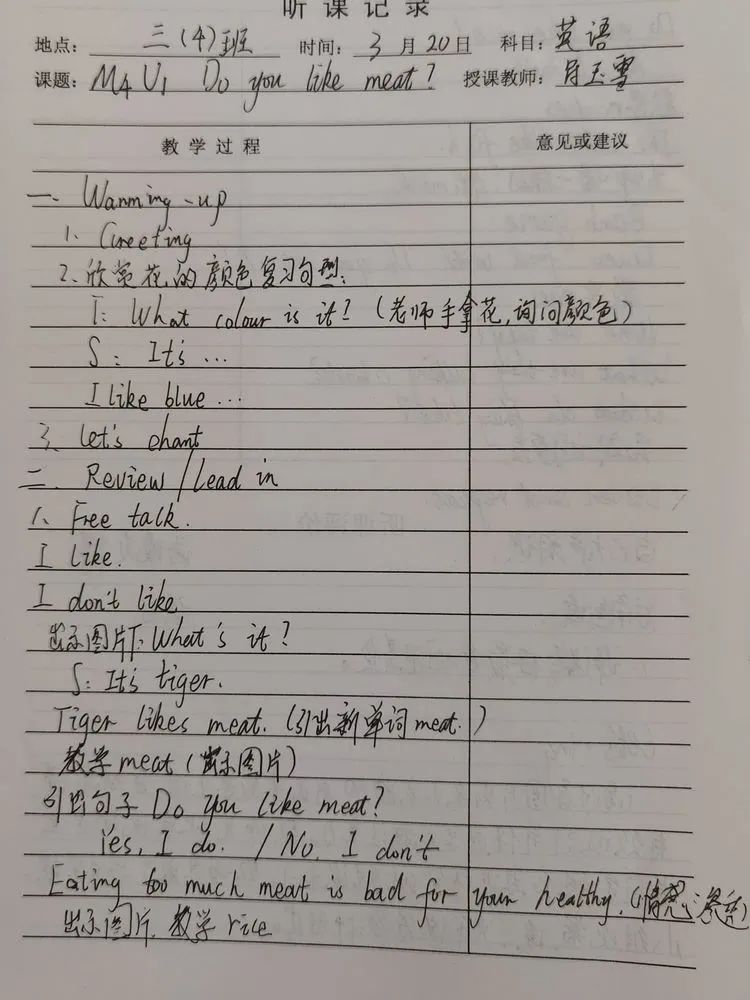 听课记录
地点：三(4)班 时间：3月20日 科目：英语
课题：M4 U1 Do you like meat? 授课教师：玉雪
教学过程 意见或建议
一、Wanming-up
1. Greeting
2. 欣赏花的颜色复习句型：
T: What colour is it? (老师手拿花,询问颜色)
S: It's ...
I like blue ...
3. Let's chant
二、Review/Lead in
1. Free talk.
I like.
I don't like
出示图片T: What's it?
S: It's tiger.
Tiger likes meat. (引出新单词meat.)
教学meat (出示图片)
引出句子 Do you like meat?
Yes, I do. / No. I don't
Eating too much meat is bad for your healthy. (情感渗透)
出示图片. 教学rice